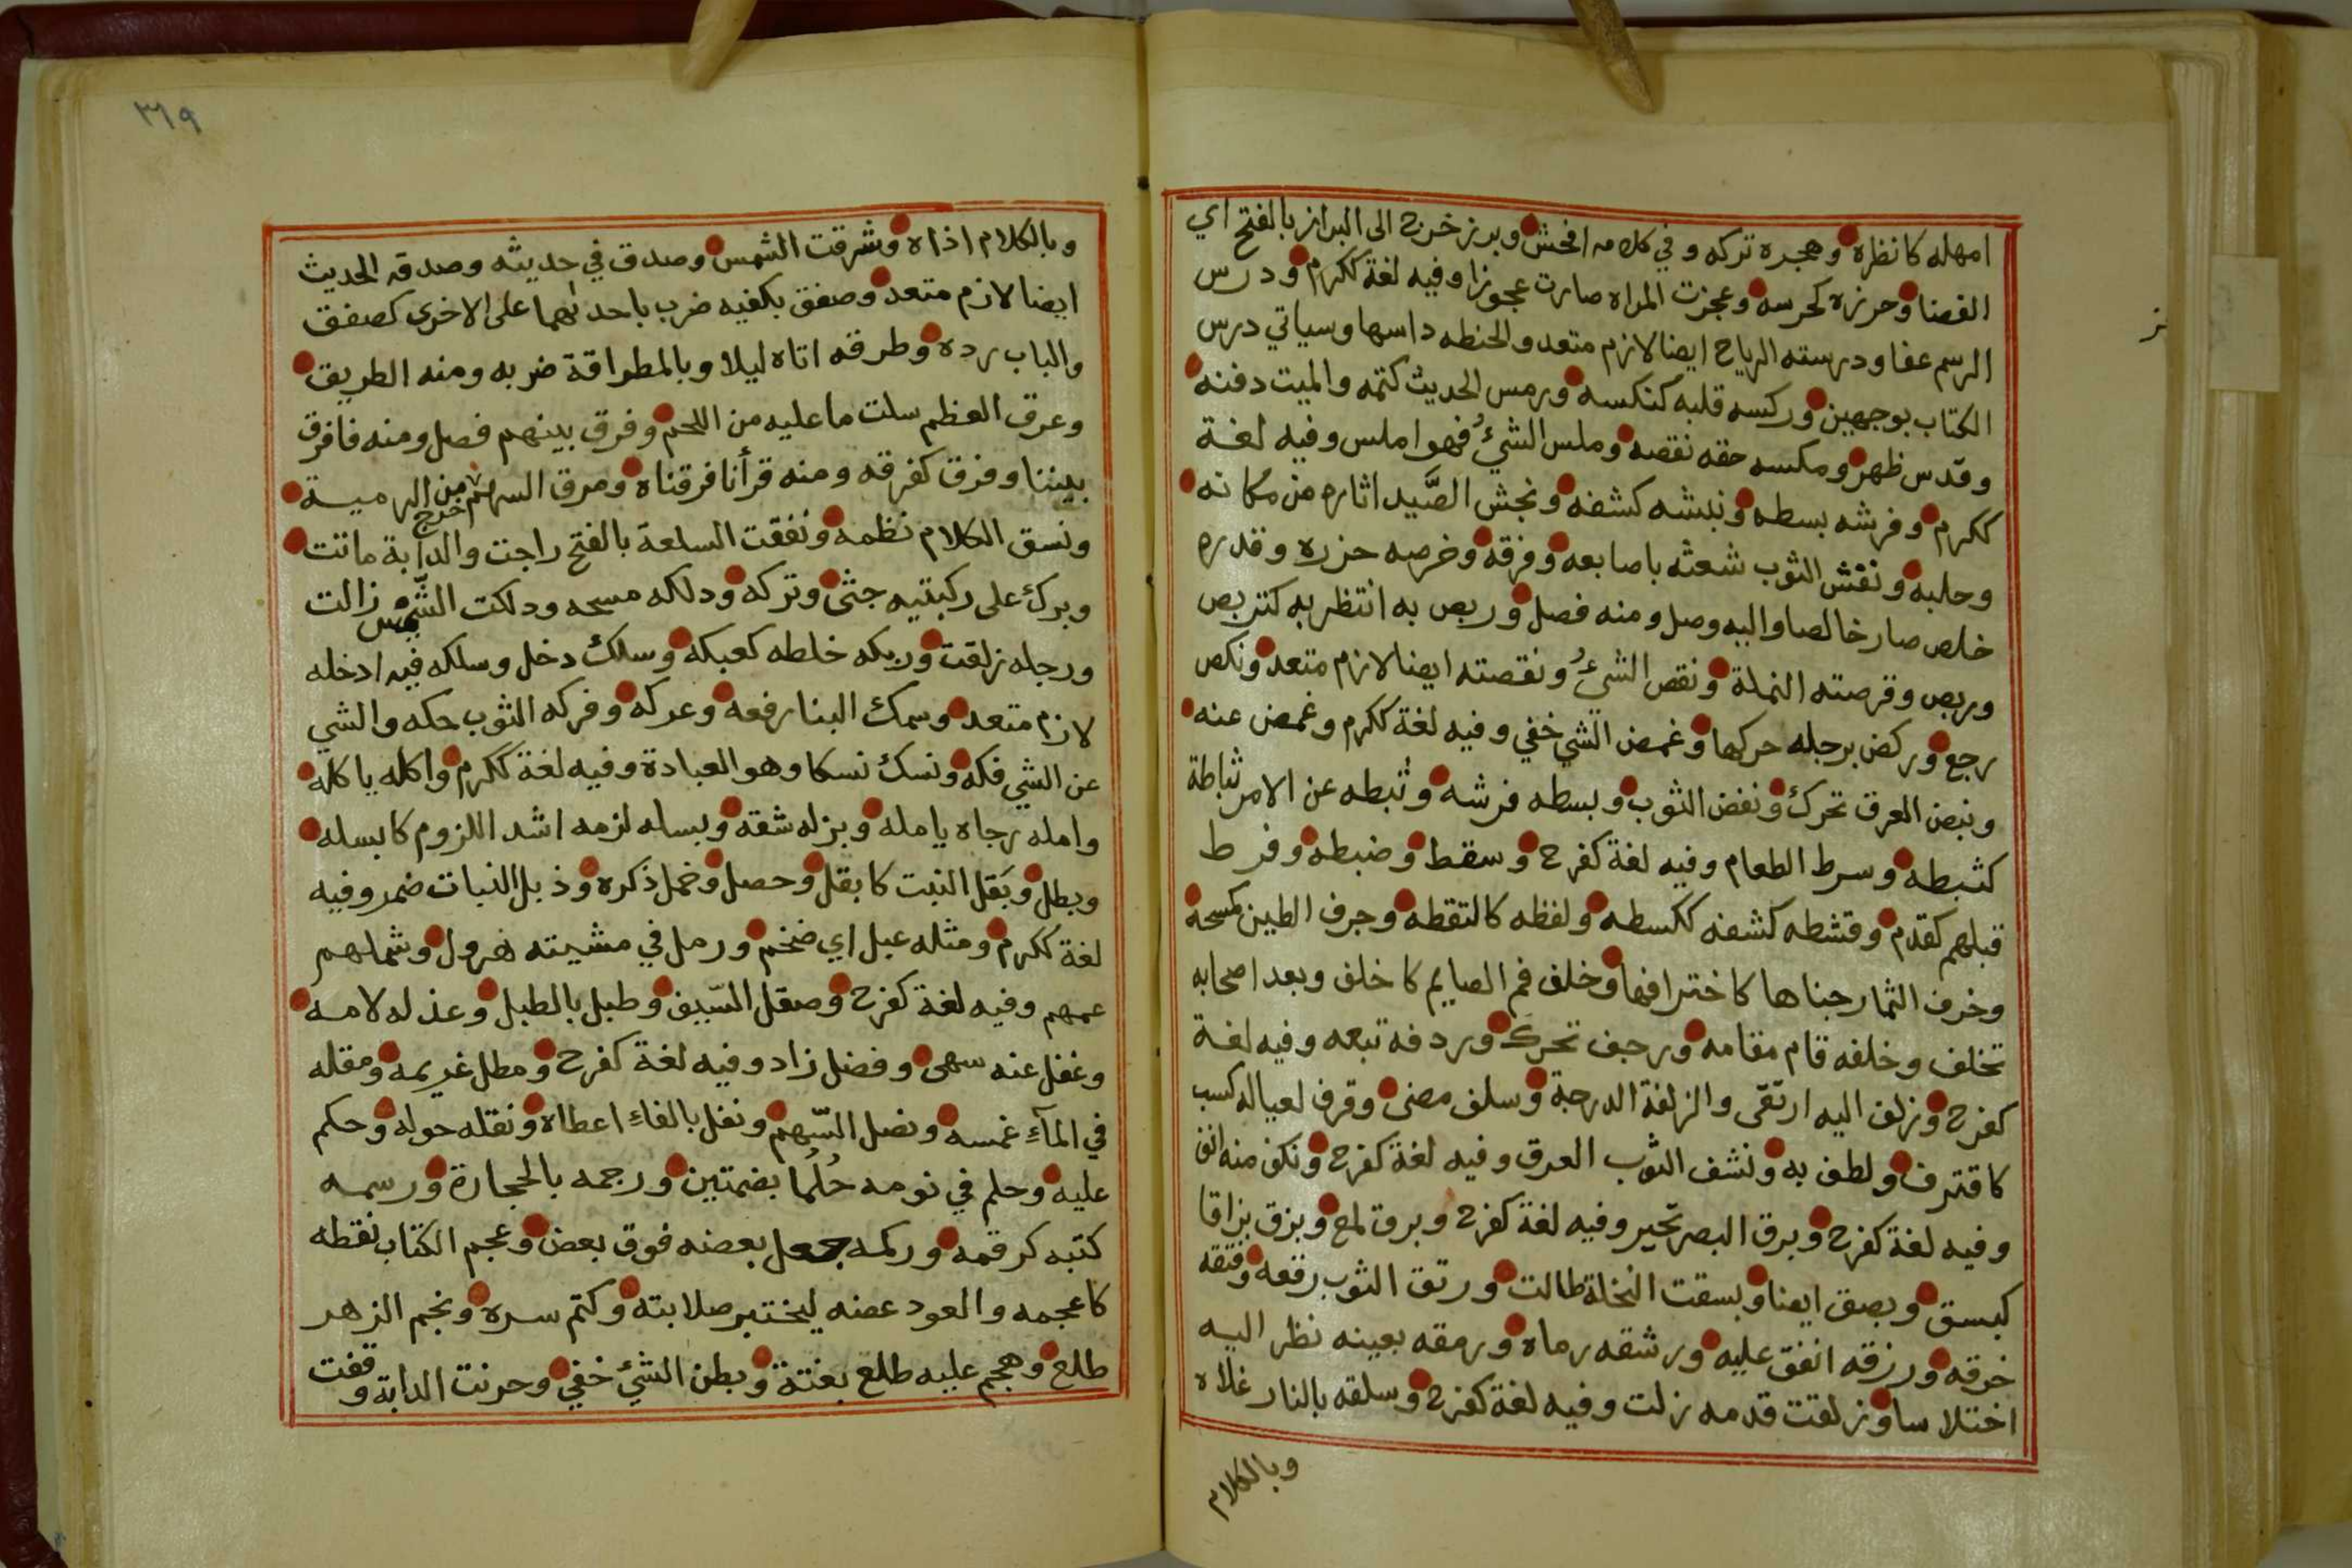 امهله كانظره وهجره تركه وفي كلامه افحش وبرز خرج الى البراز بالفتح اي
الفضا وحرزه كحرسه وعجزت المراه صارت عجوزا وفيه لغة ككرم ودرس
الرسم عفا ودرسته الرياح ايضا لازم متعد والحنطه داسها وسياتي درس
الكتاب بوجهين وركسه قلبه كنكسه ورمس الحديث كتمه والميت دفنه
وقدس ظهر ومكسه حقه نقصه وملس الشيءُ فهو املس وفيه لغة
ككرم وفرشه بسطه ونبشه كشفه ونجش الصَّيد اثاره من مكانه
وحلبه ونفش الثوب شعثه باصابعه وفرقه وخرصه حزره وقدره
خلص صار خالصا واليه وصل ومنه فصل وربص به انتظر به كتربص
وربص وقرصته النملة ونقص الشيءُ ونقصته ايضا لازم متعد ونكص
رجع وركض برجله حركها وغمض الشي خفي وفيه لغة ككرم وغمض عنه
ونبض العرق تحرك ونفض الثوب وبسطه فرشه وثبطه عن الامر ثباطة
كثبطه وسرط الطعام وفيه لغة كفرح وسقط وضبطه وفرط
قبلهم كقدم وقشطه كشفه ككسطه ولفظه كالتقطه وجرف الطين كسحه
وخرف الثمار جناها كاخترافها وخلف فم الصايم كاخلف وبعد اصحابه
تخلف وخلفه قام مقامه ورجف تحرك وردفه تبعه وفيه لغة
كفرح وزلف اليه ارتقى والزلفة الدرجة وسلف مضى وقرف لعياله كسب
كاقترف ولطف به ونشف الثوب العرق وفيه لغة كفرح ونكف منه انف
وفيه لغة كفرح وبرق البصر تحير وفيه لغة كفرح وبرق لمع وبزق بزاقا
كبسق وبصق ايضا وبسقت النخلة طالت ورتق الثوب رقعه وفتقه
خرقه ورزقه انفق عليه ورشقه رماه ورمقه بعينه نظر اليه
اختلاسا وزلقت قدمه زلت وفيه لغة كفرح وسلقه بالنار غلاه
وبالكلام
ز
٣١٩
وبالكلام اذاه وشرقت الشمس وصدق في حديثه وصدقه الحديث
ايضا لازم متعد وصفق بكفيه ضرب باحدٮهما على الاخرى كصفق
والباب رده وطرقه اتاه ليلا وبالمطراقة ضربه ومنه الطريق
وعرق العظم سلت ما عليه من اللحم وفرق بينهم فصل ومنه فافرق
بيننا وفزق كفرقه ومنه قرأنا فرقناه ومرق السهم خرج من الرمية
ونسق الكلام نظمه ونفقت السلعة بالفتح راجت والدابة ماتت
وبرك على ركبتيه جثى وتركه ودلكه مسحه ودلكت الشّمْس زالت
ورجله زلقت وربكه خلطه كعبكه وسلك دخل وسلكه فيه ادخله
لازم متعد وسمك البنا رفعه وعركه وفركه الثوب حكه والشي
عن الشي فكه ونسك نسكا وهو العبادة وفيه لغة ككرم واكله ياكله
وامله رجاه يامله وبزله شقه وبسله لزمه اشد اللزوم كابسله
وبطل وبَقل النبت كابقل وحصل وخمل ذكره وذبل النبات ضمر وفيه
لغة ككرم ومثله عبل اي ضخم ورمل في مشيته هرول وشملهم
عمهم وفيه لغة كفرح وصقل السّيف وطبل بالطبل وعذله لامه
وغفل عنه سهى وفضل زاد وفيه لغة كفرح ومطل غريمه ومقله
في المآءِ غمسه ونصل السّهم ونفل بالفاءِ اعطاه ونقله حوله وحكم
عليه وحلم في نومه حُلُما بضمتين ورجمه بالحجارة ورسمه
كتبه كرقمه وركمه جعل بعضه فوق بعض وعجم الكتاب نقطه
كاعجمه والعود عضه ليختبر صلابته وكتم سره ونجم الزهر
طلع وهجم عليه طلع بغتة وبطن الشئ خفي وحرنت الدابة وقفت